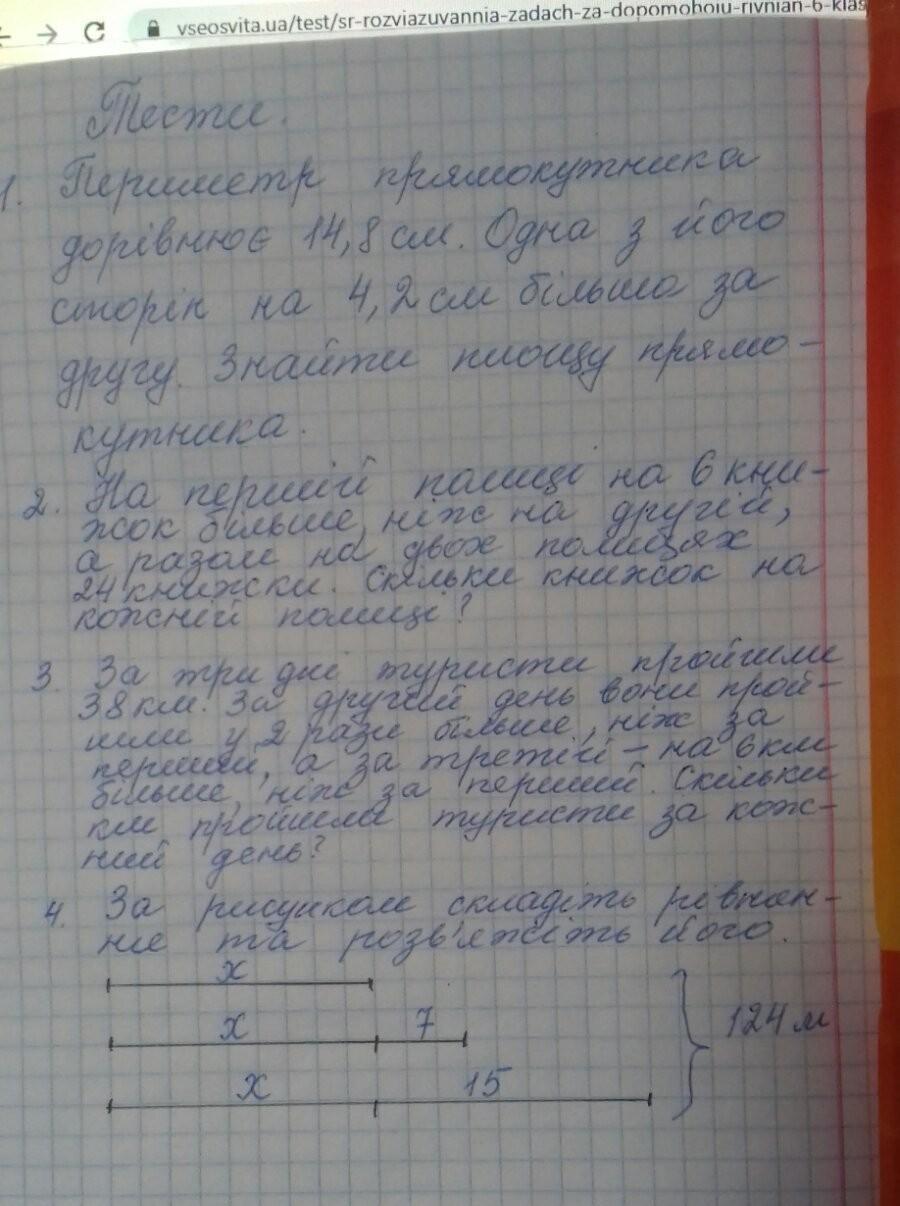 vseosvita.ua/test/sr-rozviazuvannia-zadach-za-dopomohoiu-rivnian-6-klas
Тести.
1. Периметр прямокутника
дорівнює 14,8 см. Одна з його
сторін на 4,2 см більша за
другу. Знайти площу прямо-
кутника.
2. На першій полиці на 6 кни-
жок більше, ніж на другій,
а разом на двох полицях
24 книжки. Скільки книжок на
кожній полиці?
3. За три дні туристи пройшли
38 км. За другий день вони прой-
шли у 2 рази більше, ніж за
перший, а за третій - на 6 км
більше, ніж за перший. Скільки
км пройшли туристи за кож-
ний день?
4. За рисунком складіть рівнян-
ня та розв'яжіть його.
x
x 7 124 м
x 15